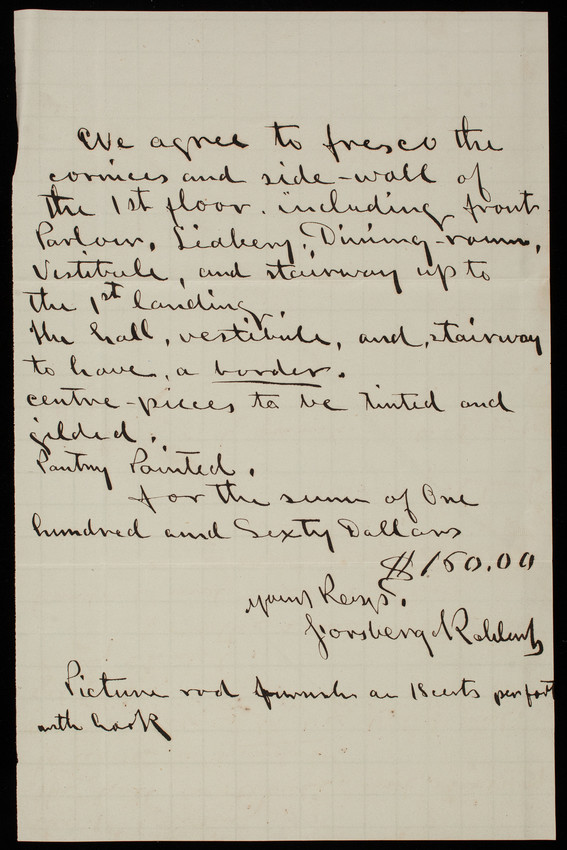 We agree to fresco the
cornices and side-wall of
the 1st floor. including front
Parlour, Sidbery, Dining-room,
Vestibule, and stairway up to
the 1st landing.
the hall, vestibule, and, stairway
to have, a border.
centre-pieces to be tinted and
gilded.
Pantry Painted.
for the sum of One
hundred and Sexty Dollars
$160.00
yours Resp.
Forsberg
Picture rod furnish a 18 cents per foot
with hook